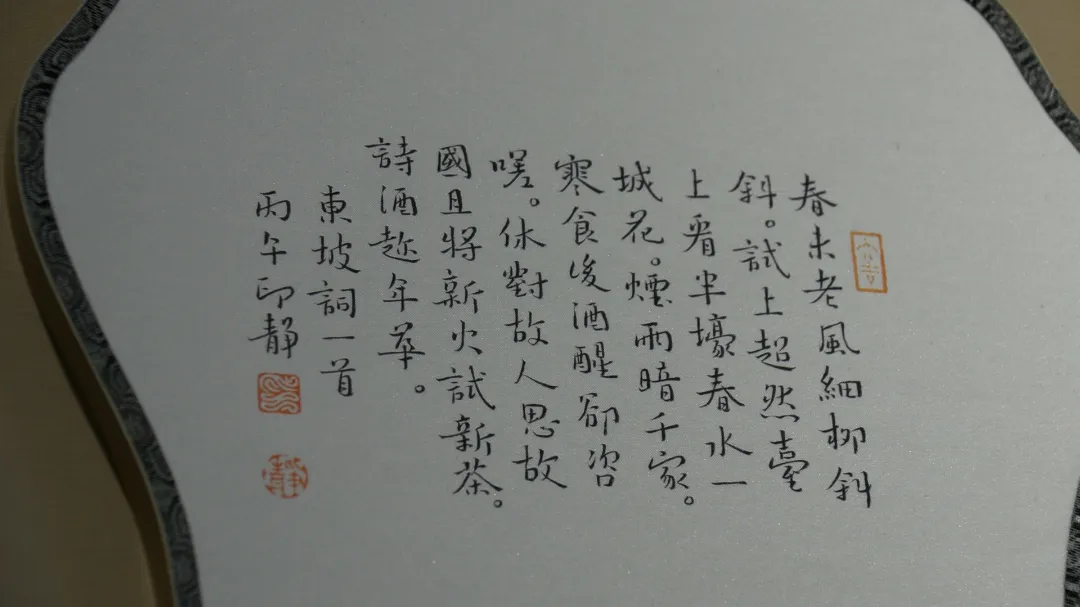 春未老風細柳斜
斜。試上超然臺
上看半壕春水一
城花。煙雨暗千家。
寒食後酒醒卻咨
嗟。休對故人思故
國且將新火試新茶。
詩酒趁年華。
東坡詞一首
丙午印靜
靜